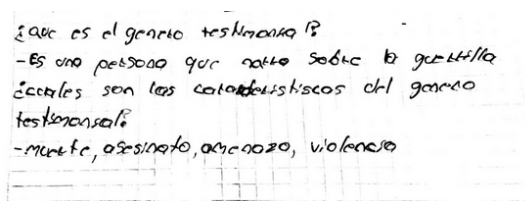 ¿que es el genero testimonial?
-Es una persona que narra sobre la guerrilla
¿cuales son las caracteristicas del genero
testimonial?
-muerte, asesinato, amenaza, violencia